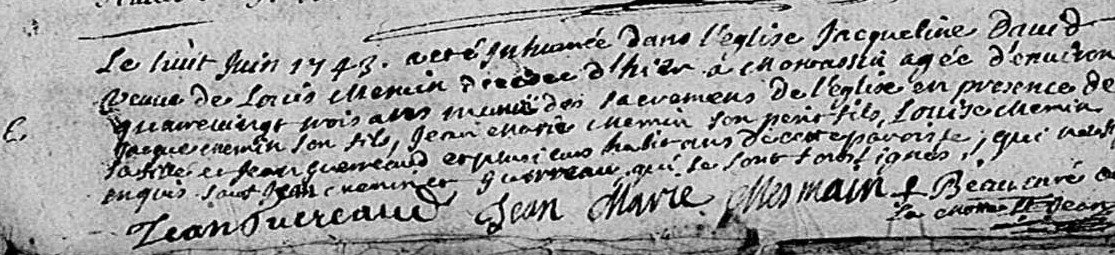 Le huit Juin 1743. a eté Inhumée dans l'eglise Jacqueline David
veuve de Louis Memin decedee d'hier à agée d'environ
quatrevingt trois ans munie des sacremens de l'eglise en presence de
Jacque memin son fils, Jean Marie Memin son petit fils, Louise Memin
sa fille et Jean guerreaud et plusieurs habitans de cette paroisse, qui
enquis sauf Jean memin et guerreau qui se sont sousignés.
Jean Guereaud Jean Marie Mesmain Beau curé
la motte St Jean